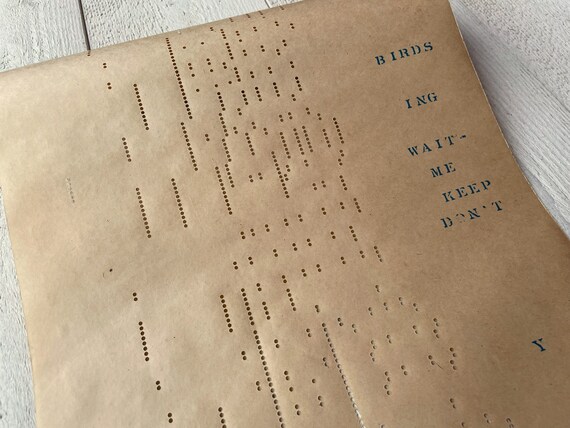 BIRDS
ING
WAIT-
ME
KEEP
DON'T
Y